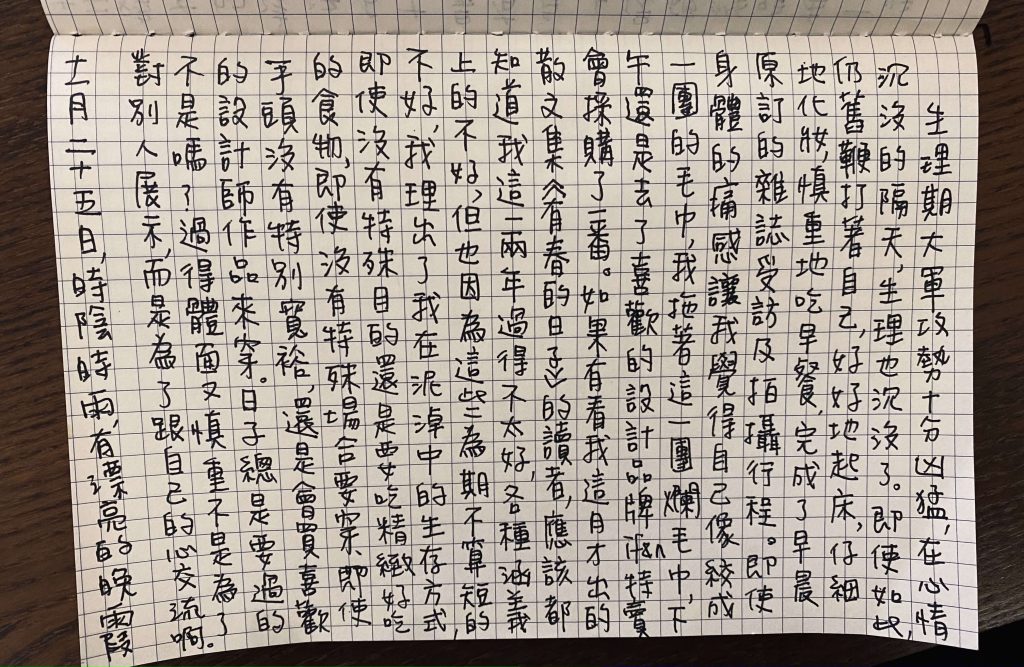 生理期大軍攻勢十分凶猛,在心情
沉沒的隔天,生理也沉沒了。即使如此,
仍舊鞭打著自己,好好地起床,仔細
地化妝,慎重地吃早餐,完成了早晨
原訂的雜誌受訪及拍攝行程。即使
身體的痛感讓我覺得自己像絞成
一團的毛巾,我拖著這一團爛毛巾,下
午還是去了喜歡的設計品牌if&n特賣
會採購了一番。如果有看我這月才出的
散文集《有春的日子》的讀者,應該都
知道我這一兩年過得不太好,各種涵義
上的不好,但也因為這些為期不算短的
不好,我理出了我在泥淖中的生存方式,
即使沒有特殊目的還是要吃精緻好吃
的食物,即使沒有特殊場合要穿、即使
手頭沒有特別寬裕,還是會買喜歡
的設計師作品來穿。日子總是要過的
不是嗎?過得體面又慎重不是為了
對別人展示,而是為了跟自己的心交流啊。
十一月二十五日,時陰時雨,有漂亮的晚霞